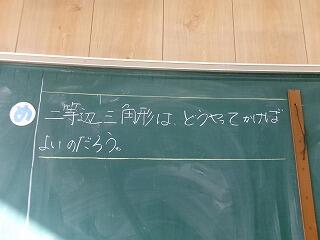 め
二等辺三角形は、どうやってかけば
よいのだろう。